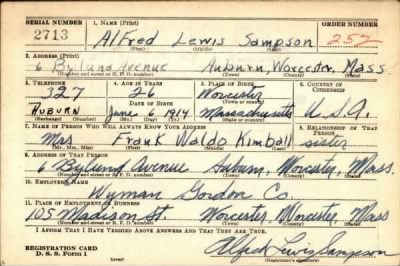 SERIAL NUMBER 1. NAME (Print) ORDER NUMBER
2713 Alfred Lewis Sampson 252
(First) (Middle) (Last)
2. ADDRESS (Print)
6 Bylund Avenue Auburn, Worcester, Mass
(Number and street or R. F. D. number) (Town) (County) (State)
3. TELEPHONE 4. AGE IN YEARS 5. PLACE OF BIRTH 6. COUNTRY OF CITIZENSHIP
327 26 Worcester
Auburn DATE OF BIRTH (Town or county)
June 6 1914 Massachusetts U.S.A.
(Exchange) (Number) (Mo.) (Day) (Yr.) (State or country)
7. NAME OF PERSON WHO WILL ALWAYS KNOW YOUR ADDRESS 8. RELATIONSHIP OF THAT PERSON
Mrs Frank Waldo Kimball sister
(Mr., Mrs., Miss) (First) (Middle) (Last)
9. ADDRESS OF THAT PERSON
6 Bylund Avenue Auburn, Worcester, Mass.
(Number and street or R. F. D. number) (Town) (County) (State)
10. EMPLOYER'S NAME
Wyman Gordon Co.
11. PLACE OF EMPLOYMENT OR BUSINESS
105 Madison St. Worcester, Worcester, Mass
(Number and street or R. F. D. number) (Town) (County) (State)
I AFFIRM THAT I HAVE VERIFIED ABOVE ANSWERS AND THAT THEY ARE TRUE.
REGISTRATION CARD
D. S. S. Form 1 Alfred Lewis Sampson
(Registrant's signature)